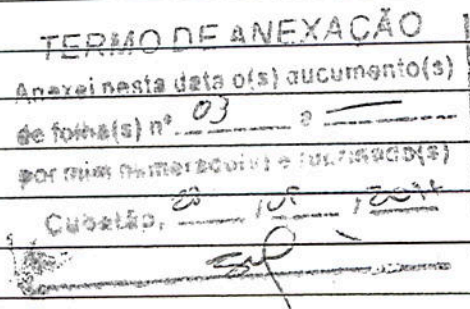 TERMO DE ANEXAÇÃO
Anexei nesta data o(s) documento(s)
de folha(s) nº 03 a —
por mim numerado(s) e rubricado(s)
Cubatão,